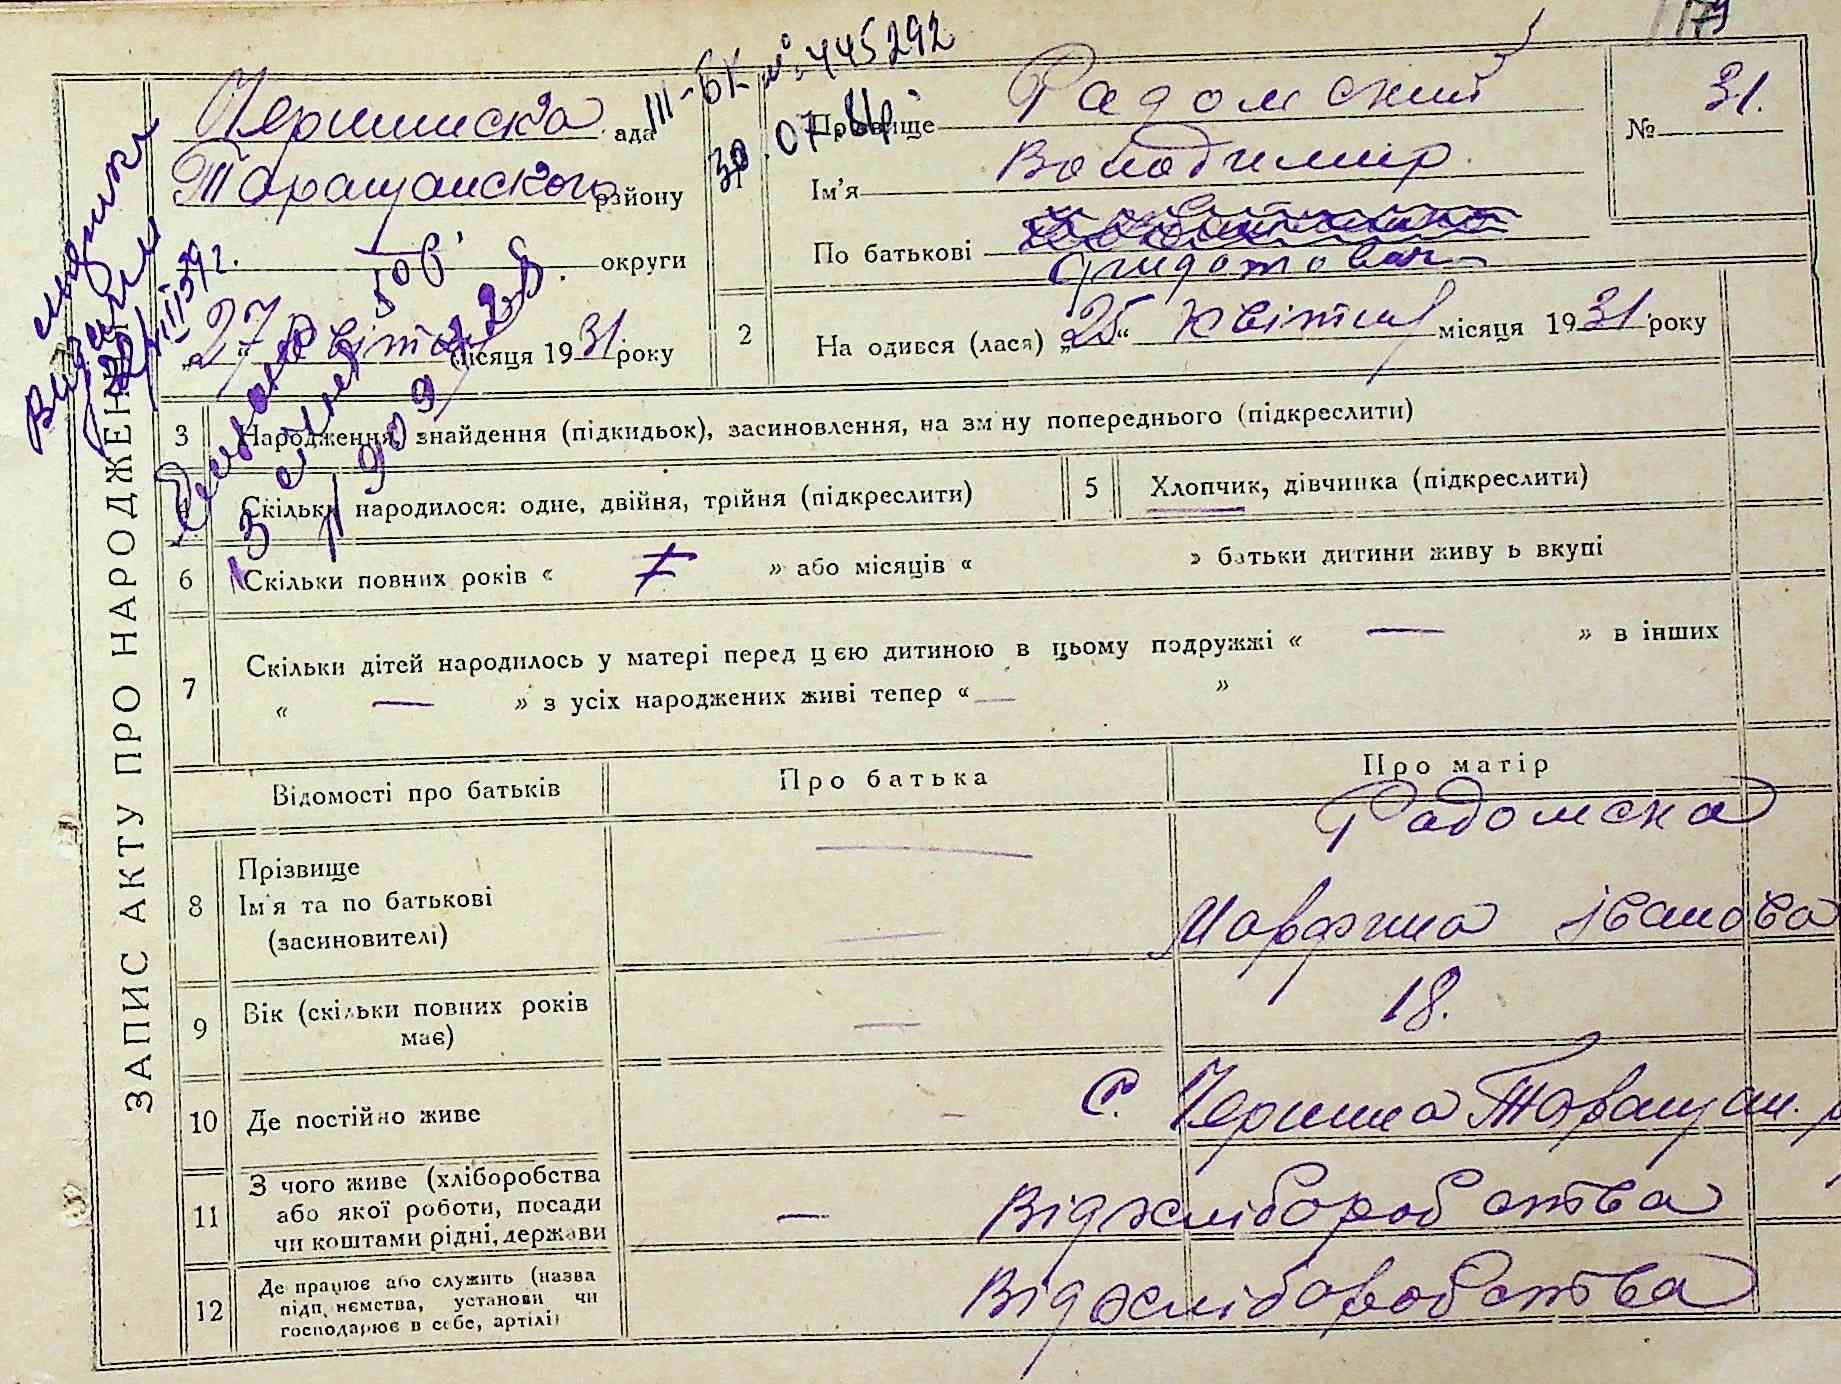 179
III-БК № 445292
30.07.
ЗАПИС АКТУ ПРО НАРОДЖЕННЯ
Чернинська рада
Таращанського району
округи
„27“ квітня місяця 1931 року
Прізвище Радомский
Ім'я Володимир
По батькові
№ 31.
2 На одився (лася) „25“ квітня місяця 1931 року
3 Народження, знайдення (підкидьок), засиновлення, на зм ну попереднього (підкреслити)
Скільки народилося: одне, двійня, трійня (підкреслити)
5 Хлопчик, дівчинка (підкреслити)
6 Скільки повних років « » або місяців « » батьки дитини живу ь вкупі
7 Скільки дітей народилось у матері перед цією дитиною в цьому подружжі « — » в інших
« — » з усіх народжених живі тепер « — »
Відомості про батьків Про батька Про матір
8 Прізвище
Ім'я та по батькові
(засиновителі)
— Радомська
— Марфина Іванова
9 Вік (скільки повних років
має)
— 18.
10 Де постійно живе - С. Чернина Таращан. р
11 З чого живе (хліборобства
або якої роботи, посади
чи коштами рідні, держави
— Від хліборобства
12 Де працює або служить (назва
підп ємства, установи чи
господарює в себе, артілі)
Від хліборобства